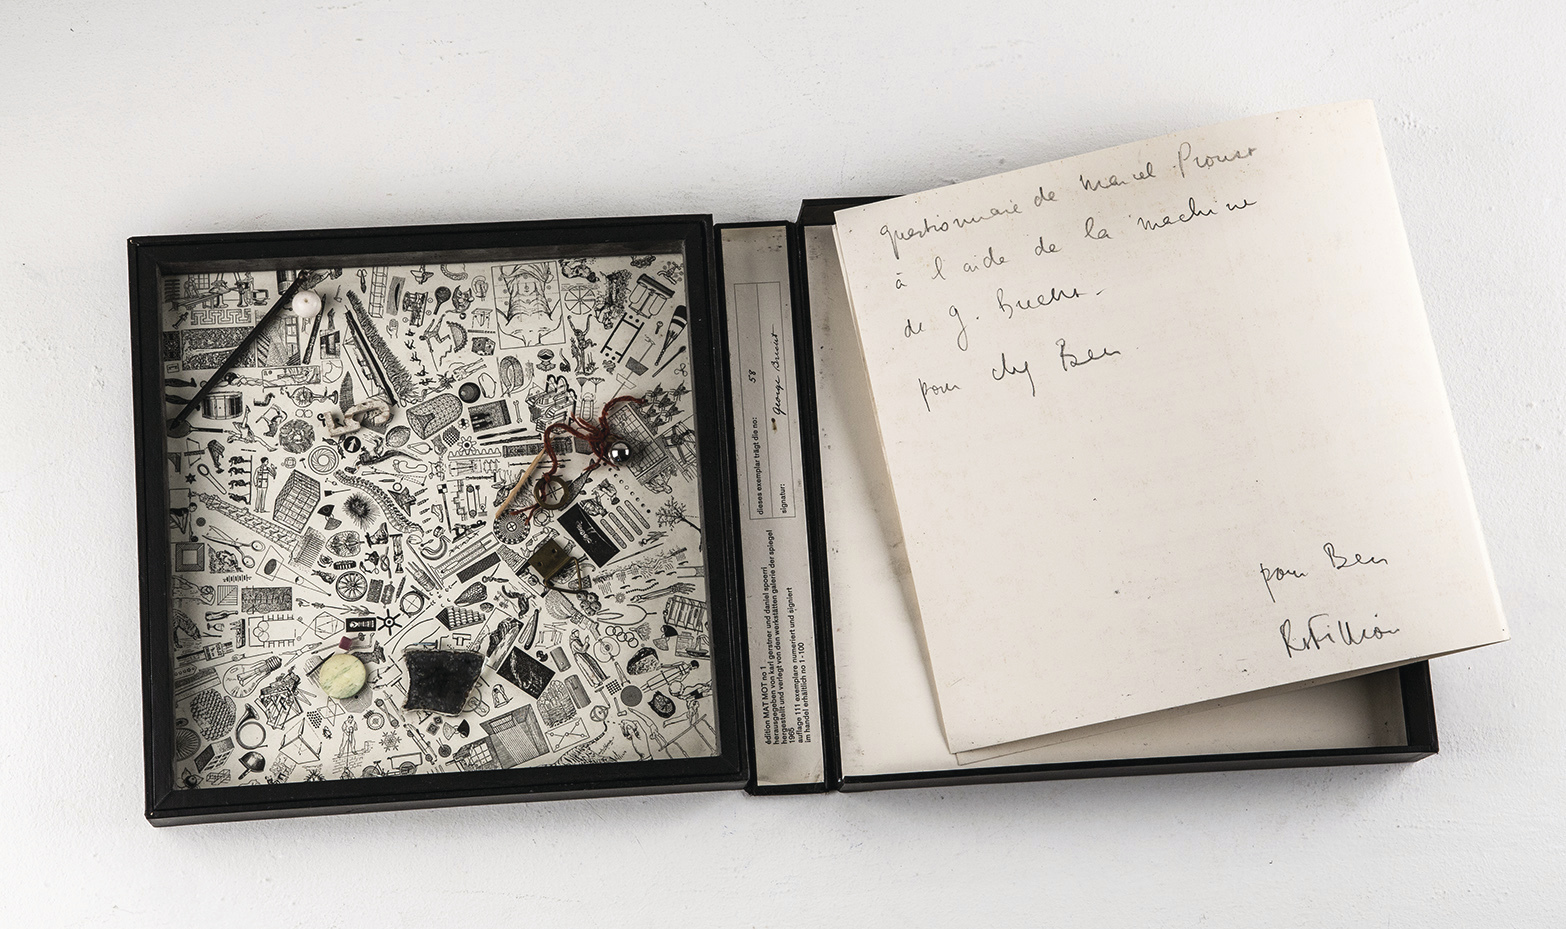 dieses exemplar trägt die no: 58
signatur: George Brecht
édition MAT MOT no 1
herausgegeben von karl gerstner und daniel spoerri
hergestellt und verlegt von den werkstätten galerie der spiegel
1965
auflage 111 exemplare numeriert und signiert
im handel erhältlich no 1 - 100
questionnaire de Marcel Proust
à l'aide de la machine
de g. Brecht -
pour chez Ben
pour Ben
R. Filliou